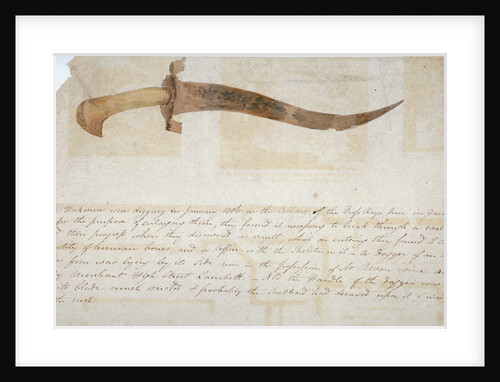 Workmen was digging in January 1806 in the Cellars of the Cross Keys Inn in Grace
for the purpose of enlarging them, they found it necessary to break through a
their progress when they discovered a vault, which on entering they found
of human bones and a coffin with the Skeleton in it — A Dagger of an
form was lying by its side now in the possession of Mr
Merchant High Street Lambeth — NB the Handle of the dagger was
its blade much rusted & probably the Scabbard had decayed upon it